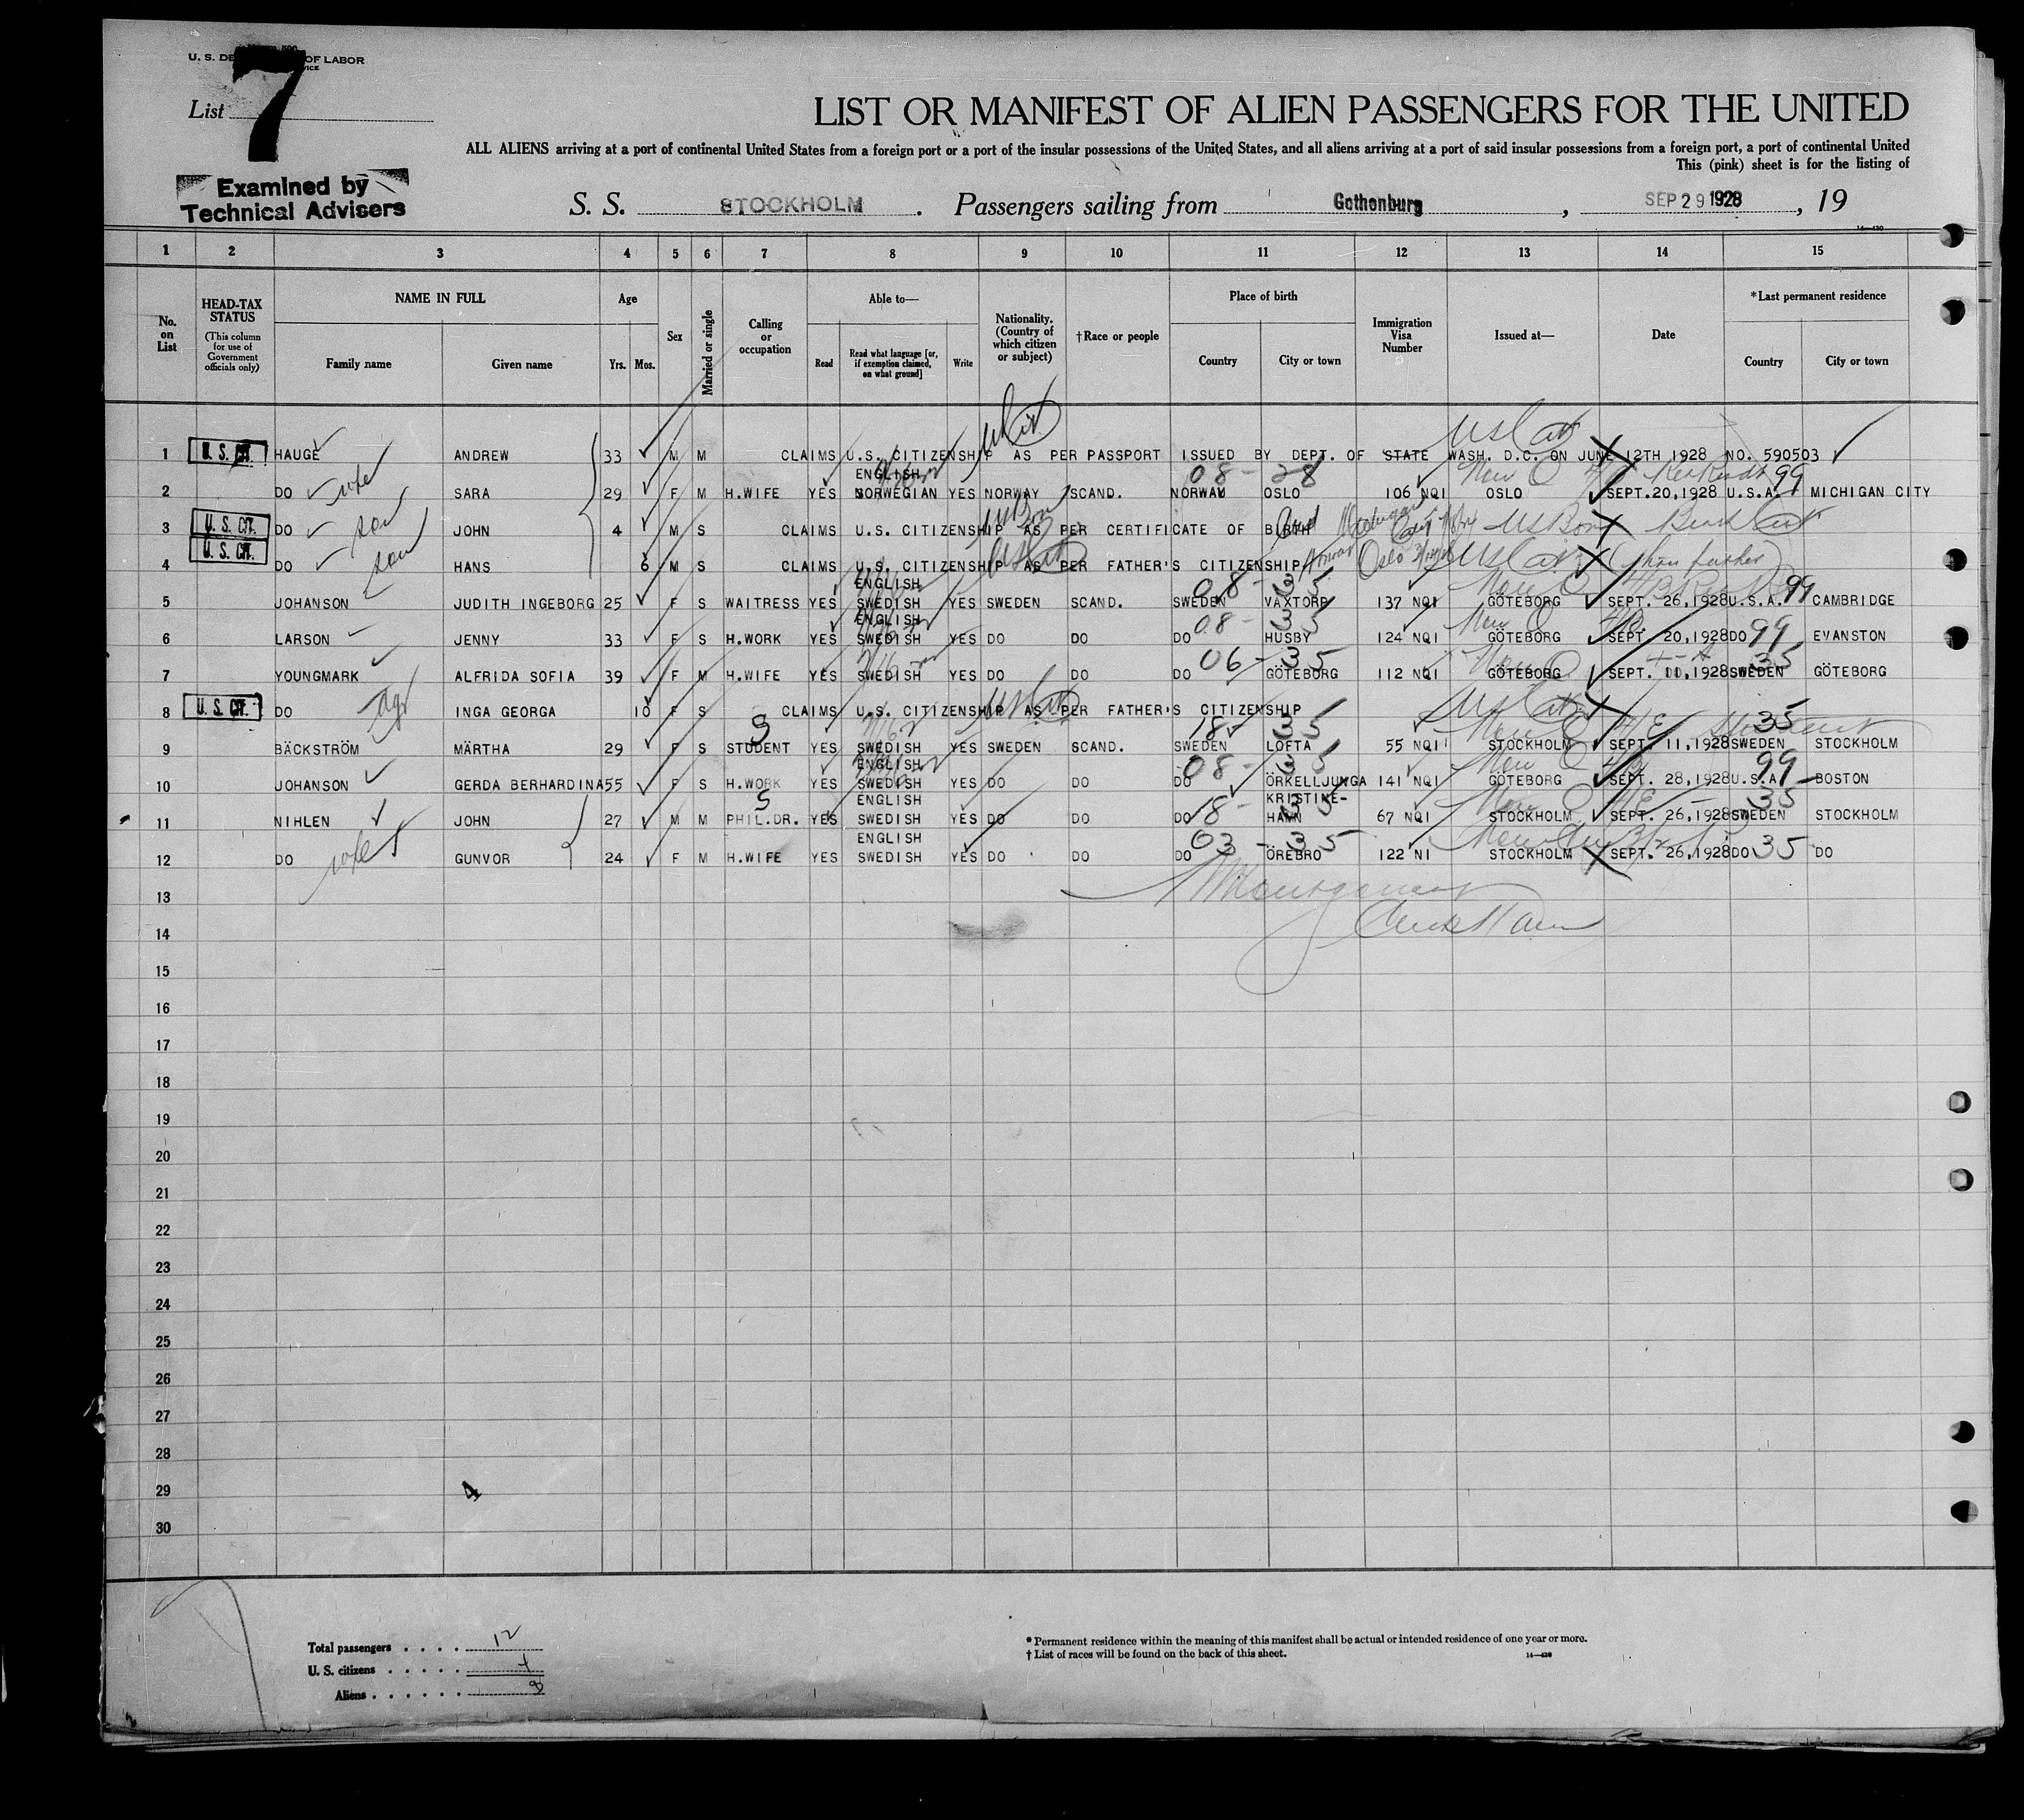 U. S. DE OF LABOR
List 7
LIST OR MANIFEST OF ALIEN PASSENGERS FOR THE UNITED
ALL ALIENS arriving at a port of continental United States from a foreign port or a port of the insular possessions of the United States, and all aliens arriving at a port of said insular possessions from a foreign port, a port of continental United
This (pink) sheet is for the listing of
Examined by
Technical Advisers
S. S. STOCKHOLM. Passengers sailing from Gothenburg, SEP 29 1928, 19
1 2 3 4 5 6 7 8 9 10 11 12 13 14 15
No. on List
HEAD-TAX STATUS (This column for use of Government officials only)
NAME IN FULL Family name Given name
Age Yrs. Mos.
Sex
Married or single
Calling or occupation
Able to— Read Read what language [or, if exemption claimed, on what ground] Write
Nationality. (Country of which citizen or subject)
†Race or people
Place of birth Country City or town
Immigration Visa Number
Issued at—
Date
*Last permanent residence Country City or town
1 U. S. CIT. HAUGE ANDREW 33 M M CLAIMS U.S. CITIZENSHIP AS PER PASSPORT ISSUED BY DEPT. OF STATE WASH. D.C. ON JUNE 12TH 1928 NO. 590503
2 DO wife SARA 29 F M H.WIFE YES ENGLISH NORWEGIAN YES NORWAY SCAND. NORWAY OSLO 08-28 106 NQI OSLO SEPT.20,1928 U.S.A. 99 MICHIGAN CITY
3 U. S. CIT. DO son JOHN 4 M S CLAIMS U.S. CITIZENSHIP AS PER CERTIFICATE OF BIRTH
4 U. S. CIT. DO son HANS 6 M S CLAIMS U.S. CITIZENSHIP AS PER FATHER'S CITIZENSHIP
5 JOHANSON JUDITH INGEBORG 25 F S WAITRESS YES ENGLISH SWEDISH YES SWEDEN SCAND. SWEDEN VAXTORP 08-35 137 NQI GÖTEBORG SEPT. 26,1928 U.S.A. 99 CAMBRIDGE
6 LARSON JENNY 33 F S H.WORK YES ENGLISH SWEDISH YES DO DO DO HUSBY 08-35 124 NQI GÖTEBORG SEPT. 20,1928 DO 99 EVANSTON
7 YOUNGMARK ALFRIDA SOFIA 39 F M H.WIFE YES SWEDISH YES DO DO DO GÖTEBORG 06-35 112 NQI GÖTEBORG SEPT. 11,1928 SWEDEN 35 GÖTEBORG
8 U. S. CIT. DO INGA GEORGA 10 F S CLAIMS U.S. CITIZENSHIP AS PER FATHER'S CITIZENSHIP
9 BÄCKSTRÖM MÄRTHA 29 F S STUDENT S YES SWEDISH YES SWEDEN SCAND. SWEDEN LOFTA 18-35 55 NQI STOCKHOLM SEPT. 11,1928 SWEDEN 35 STOCKHOLM
10 JOHANSON GERDA BERHARDINA 55 F S H.WORK YES ENGLISH SWEDISH YES DO DO DO ÖRKELLJUNGA 08-35 141 NQI GÖTEBORG SEPT. 28,1928 U.S.A. 99 BOSTON
11 NIHLEN JOHN 27 M M PHIL.DR. S YES ENGLISH SWEDISH YES DO DO DO KRISTINE-HAMN 18-35 67 NQI STOCKHOLM SEPT. 26,1928 SWEDEN 35 STOCKHOLM
12 DO wife GUNVOR 24 F M H.WIFE YES ENGLISH SWEDISH YES DO DO DO ÖREBRO 03-35 122 NI STOCKHOLM SEPT. 26,1928 DO 35 DO
13
14
15
16
17
18
19
20
21
22
23
24
25
26
27
28
29
30
4
Total passengers . . . . 12
U. S. citizens . . . . .
Aliens . . . . . .
* Permanent residence within the meaning of this manifest shall be actual or intended residence of one year or more.
† List of races will be found on the back of this sheet.
14—430